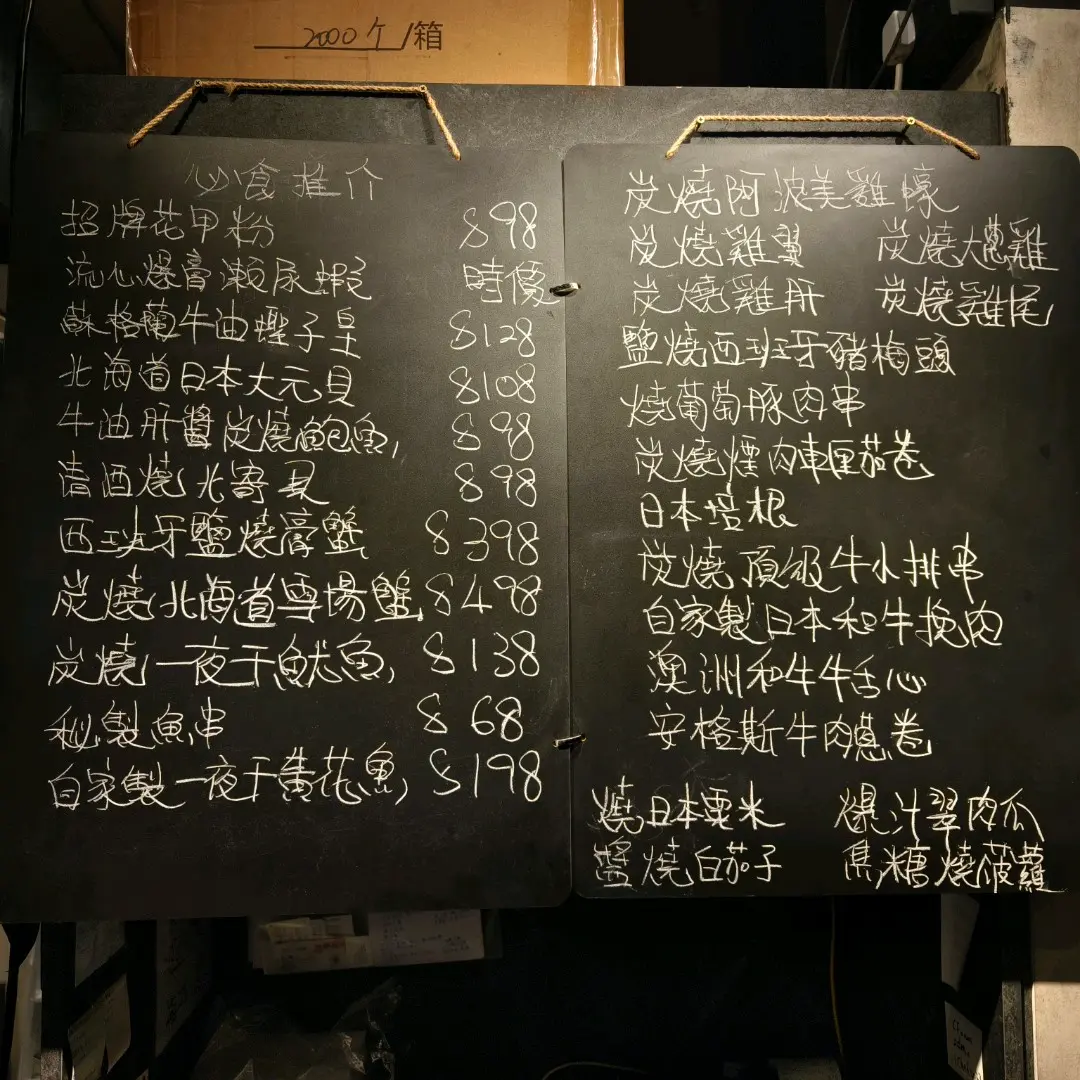 2000个/箱
必食推介
招牌花甲粉 $98
流心爆膏瀨尿蝦 時價
蘇格蘭牛油蟶子皇 $128
北海道日本大元貝 $108
牛油肝醬炭燒鮑魚 $98
清酒燒北寄貝 $98
西班牙鹽燒膏蟹 $398
炭燒北海道雪場蟹 $498
炭燒一夜干魷魚 $138
秘製魚串 $68
自家製一夜干黃花魚 $198
炭燒阿波美雞蠔
炭燒雞翼 炭燒大蔥雞
炭燒雞肝 炭燒雞尾
鹽燒西班牙豬梅頭
燒葡萄豚肉串
炭燒煙肉車厘茄卷
日本培根
炭燒頂級牛小排串
自家製日本和牛挽肉
澳洲和牛牛舌心
安格斯牛肉蔥卷
燒日本粟米 爆汁翠肉瓜
醬燒白茄子 焦糖燒菠蘿